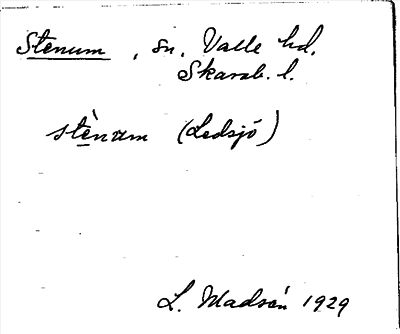 Stenum, sn. Valle hd.
Skarab. l.
stènum (Ledsjö)
L. Madsén 1929